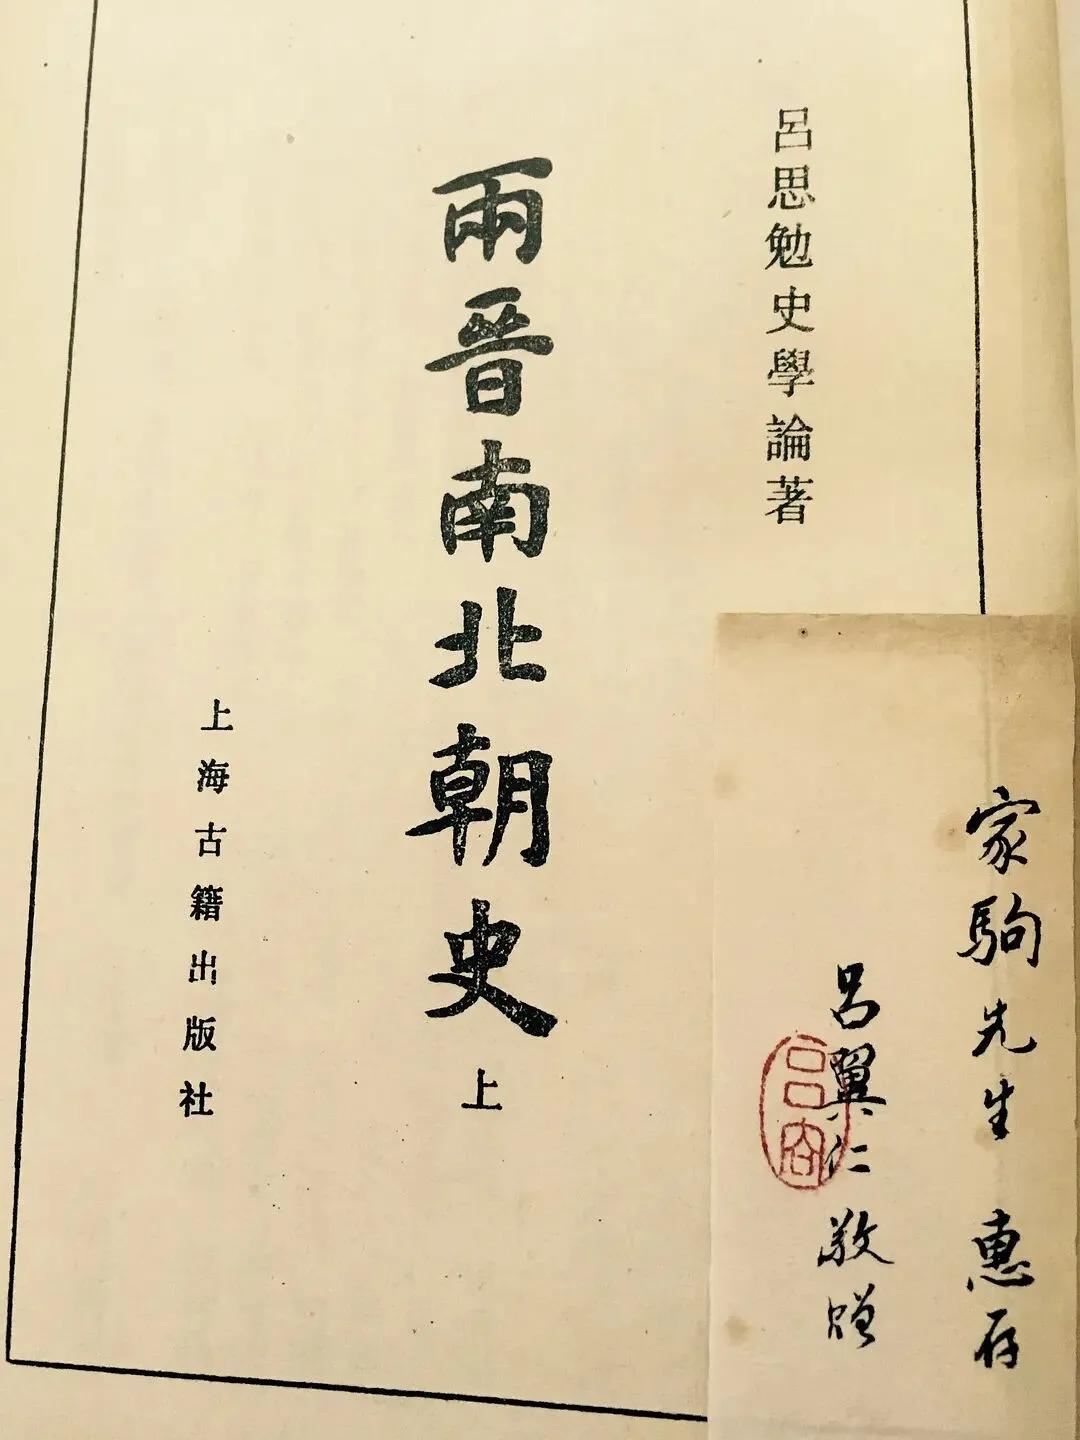 呂思勉史學論著
兩晉南北朝史 上
上海古籍出版社
家駒先生 惠存
呂翼仁 敬贈
呂容